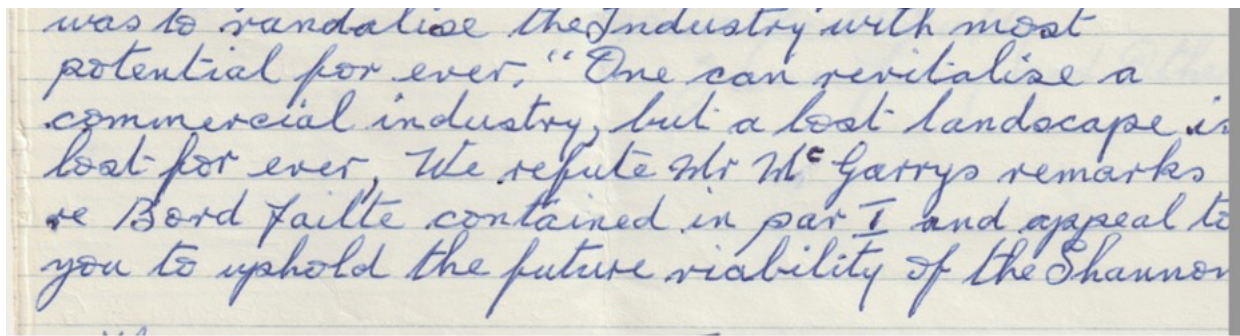 was to vandalise the Industry with most
potential for ever." One can revitalise a
commercial industry, but a lost landscape is
lost for ever. We refute Mr Mc Garrys remarks
re Bord Failte contained in par I and appeal to
you to uphold the future viability of the Shannon